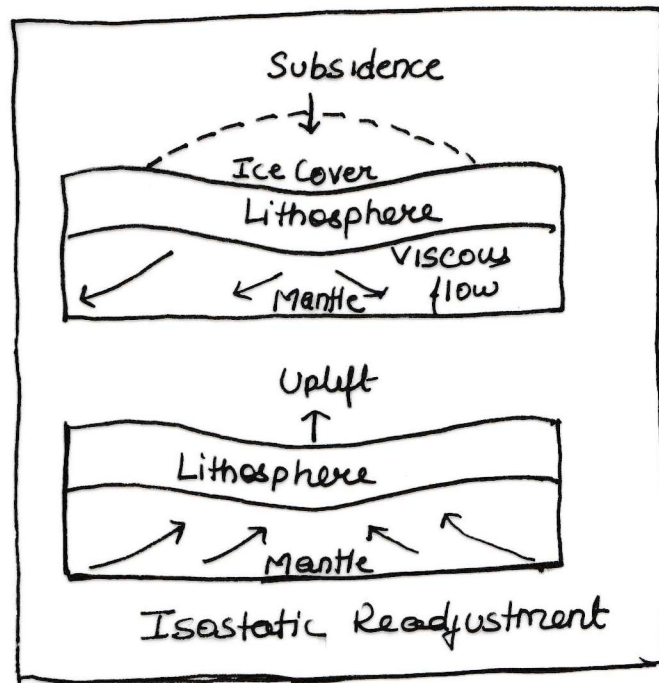 Subsidence
Ice Cover
Lithosphere
Viscous
flow
Mantle
Uplift
Lithosphere
Mantle
Isostatic Readjustment